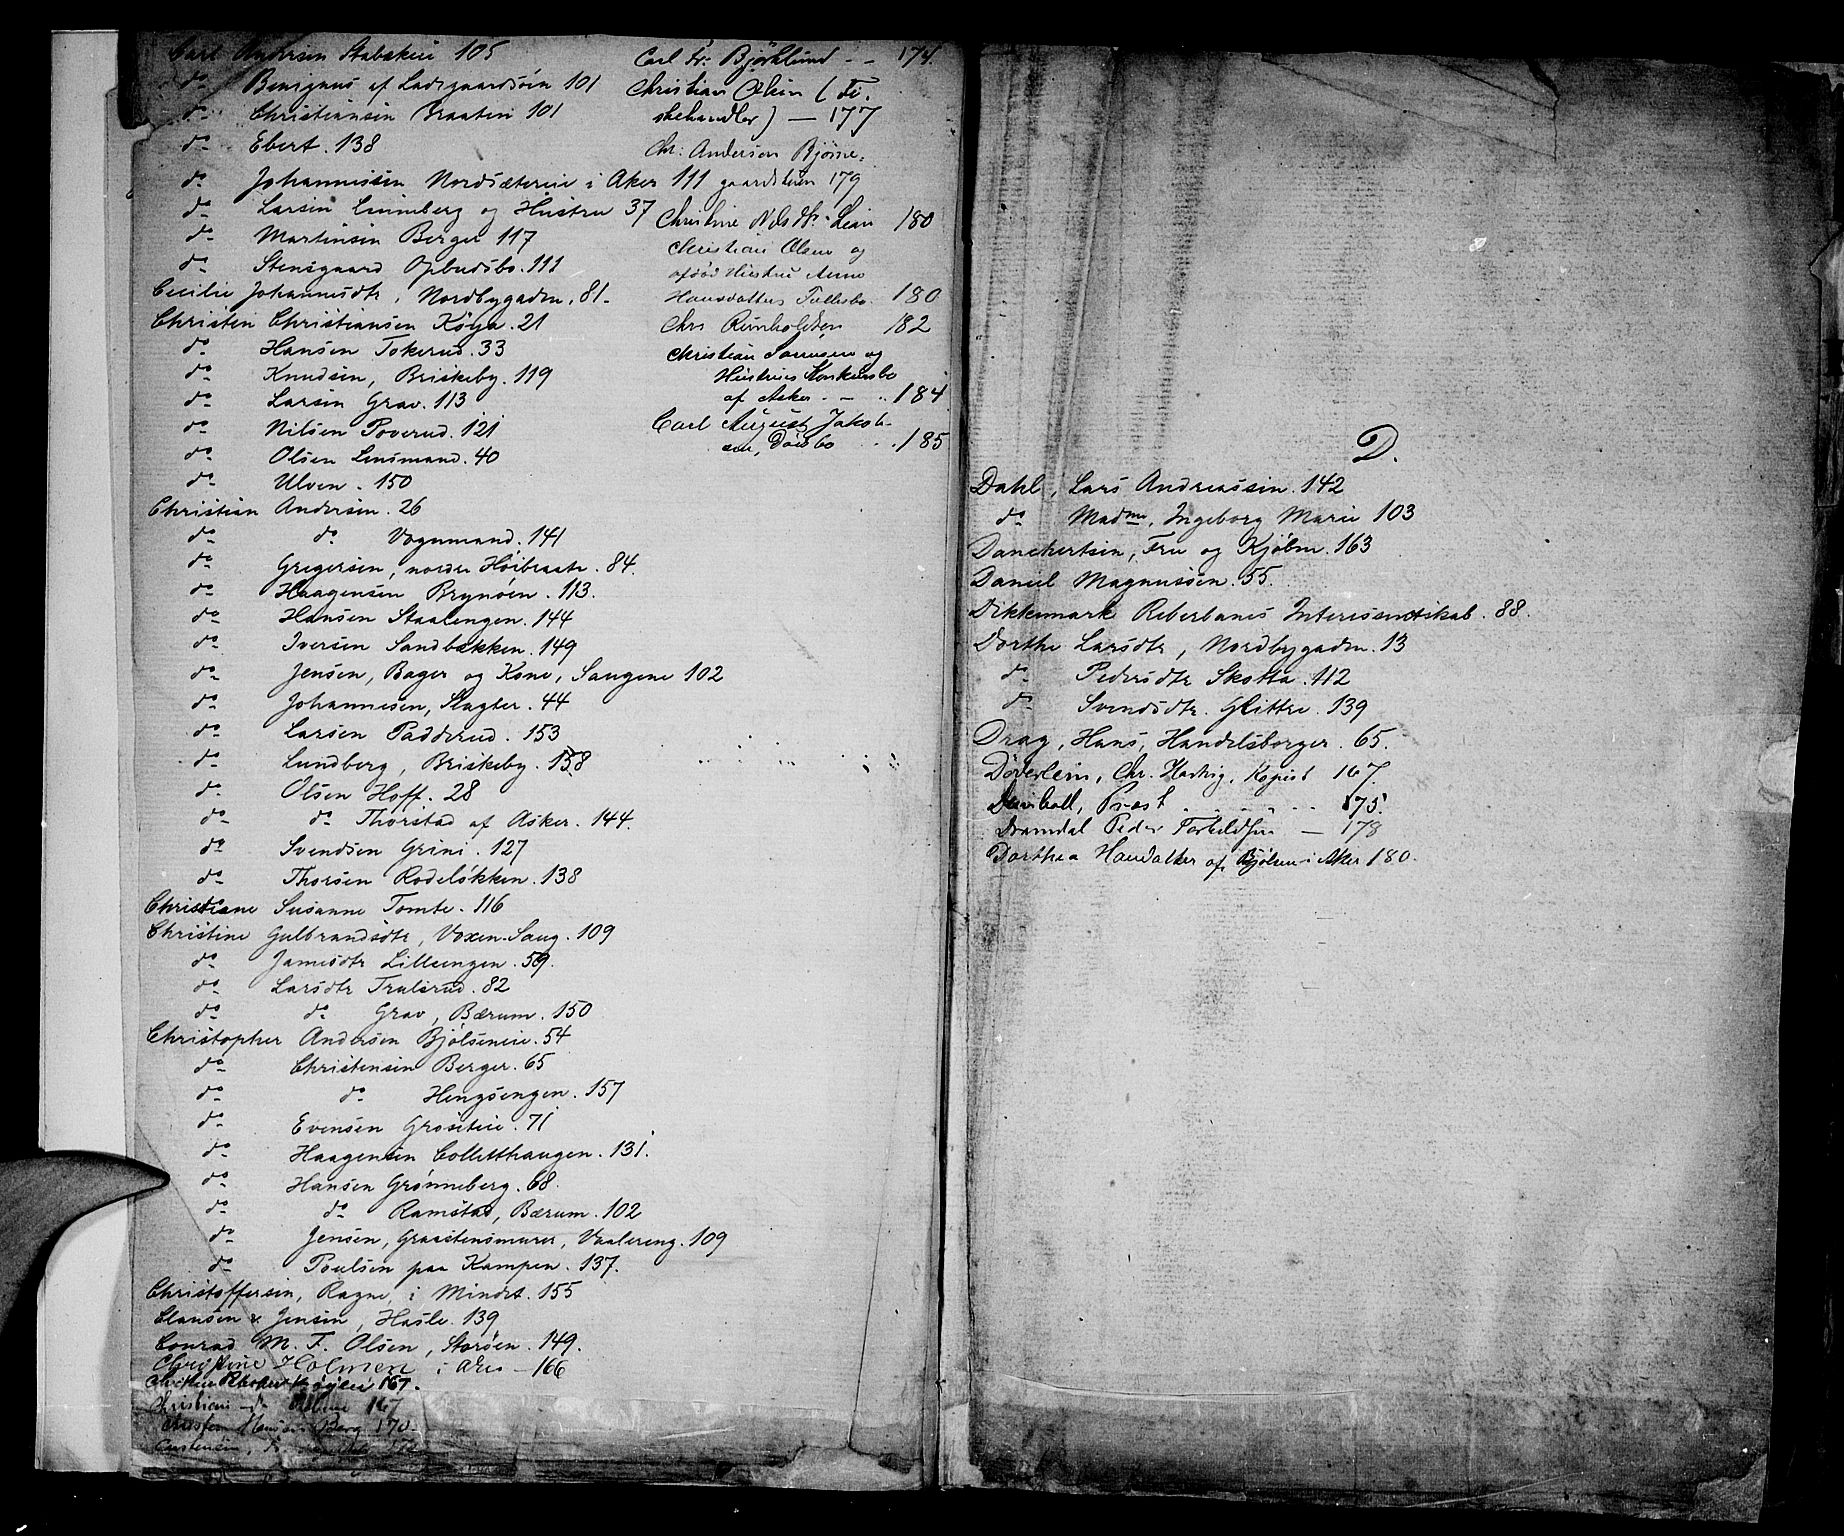 Carl Andersen Stabækeie 105
do Benignus af Ladegaardsøen 101
do Christiansen Braaten 101
do Ebert. 138
do Johannessen Nordsætereie i Aker 111
do Larsen Linneberg og Hustru 37
do Martinsen Berger 117
do Stensgaard Opbudsbo. 111
Cecilie Johannesdtr, Nordbygaden. 81.
Christen Christiansen Køya. 21
do Hansen Tokerud. 33
do Knudsen, Briskeby. 119
do Larsen Grav. 113
do Nilsen Poverud. 121
do Olsen Linsmand. 40
do Ulven. 150
Christian Andersen. 26
do do Vognmand. 141
do Gregersen, nordre Høibraate. 84.
do Haagensen Brynøen. 113.
do Hansen Staalengen. 144
do Iversen Sandbakken. 149
do Jensen, Bager og Kone, Saugene 102
do Johannesen, Slagter. 44
do Larsen Padderud. 153
do Lundberg, Briskeby. 158
do Olsen Hoff. 28
do do Thorstad af Asker. 144.
do Svendsen Grini. 127
do Thorsen Rodeløkken. 138
Christiane Susanne Tomte. 116
Christine Gulbrandsdtr, Voxen-Saug. 109
do Jamesdtr Lilleengen. 59.
do Larsdtr Trulsrud. 82
do do Grav, Bærum. 150
Christopher Andersen Bjølseneie. 54
do Christensen Berger. 65
do do Hengsengen. 157
do Evensen Grøseteie. 71
do Haagensen Colletthaugen. 131.
do Hansen Grønneberg. 68.
do do Ramstad, Bærum. 102
do Jensen, Graastensmurer, Vaalereng. 109
do Poulsen paa Kampen. 137.
Christoffersen, Ragne, i Mindet. 155
Clausen & Jensen, Hasle. 139
Conrad M. F. Olsen, Storøen. 149.
Christine Holmen i 166
167.
Christian do 167
Hansen Berg 170.
Carl Fr: Björklund - - 174.
Christian Olsen (Fi-
skehandler) — 177
Chr: Andersen Bjørne-
gaardsteien 179
Christine Nilsdtr: Lein 180
Christian Olsen og
afdød Hustru Anne
Hansdatters Fællesbo. 180
Chrs Reinholdtsen 182
Christian Sørensen og
Hustrues Konkursbo
af Asker - - 184
Carl August Jakob-
sen, Døds bo . . . 185
D.
Dahl, Lars Andreassen. 142
do Madme, Ingeborg Marie 103
Danchertsen, Fru og Kjøbm. 163
Daniel Magnussen. 55.
Dikkemark Reberbanes Interessentskab. 88.
Dorthe Larsdtr, Nordbygaden. 13
do Pedersdtr Skotta. 112
do Svendsdtr. Glittre. 139
Drag, Hans, Handelsborger. 65.
Döderlein, Chr. Hartvig, Kopist 167.
Præst . . . . 175.
Dramdal Peder Torkildsen — 178
Dorthea Hansdatter af Bjølsen i Aker 180.